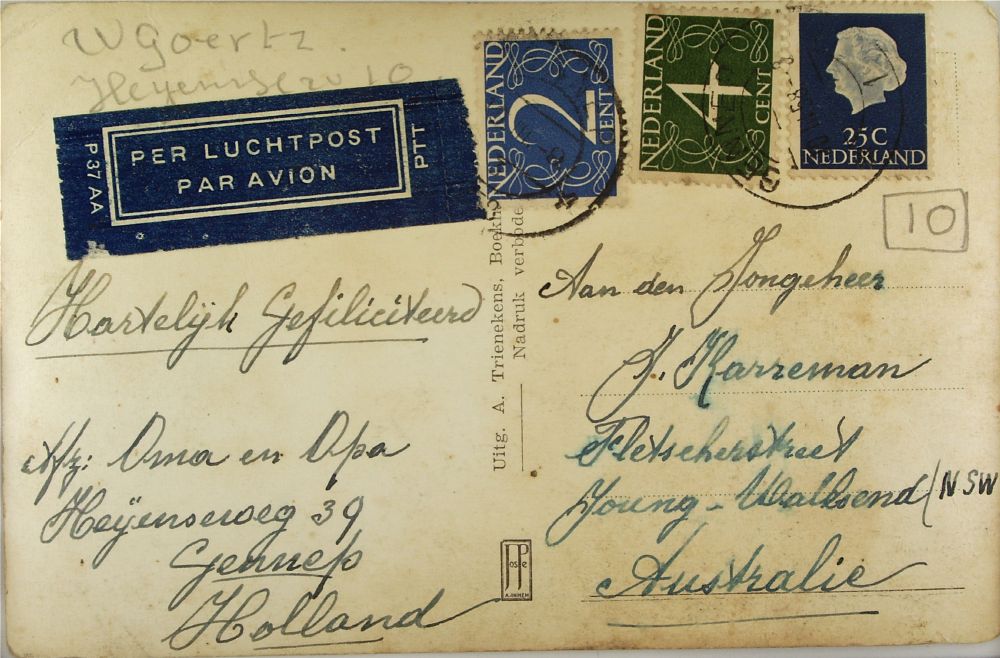 W Goertz.
Heyenseweg 10
PER LUCHTPOST
PAR AVION
P 37 AA
PTT
NEDERLAND
2
CENT
NEDERLAND
4
CENT
25C
NEDERLAND
10
Hartelijk Gefiliciteerd
afz: Oma en Opa
Heÿenseweg 39
Gennep
Holland
Uitg. A. Trienekens, Boekh
Nadruk verbode
JosPe
ARNHEM
Aan den Jongeheer
J. Karreman
Fletscherstreet
Young - Wallsend / NSW
Australie